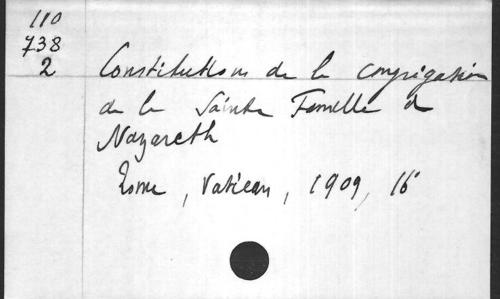 110
738
2 Constitutions de la congrégation
de la Sainte Famille de
Nazareth
Rome, Vatican, 1909, 16°